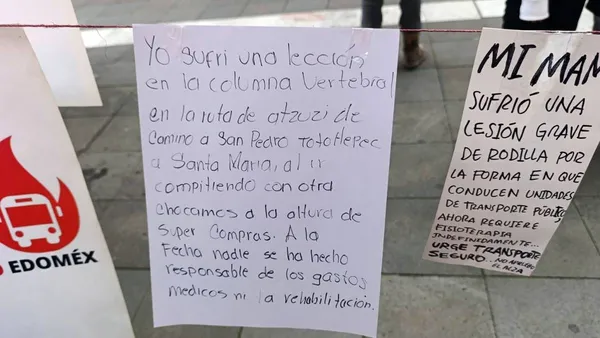 EDOMÉX
Yo sufrí una lección
en la columna vertebral
en la ruta de atzuzi de
Camino a San Pedro Tototlepec
a Santa Maria, al ir
compitiendo con otra
chocamos a la altura de
Super Compras. A la
Fecha nadie se ha hecho
responsable de los gastos
medicos ni la rehabilitación.
MI MAM
SUFRIÓ UNA
LESIÓN GRAVE
DE RODILLA POR
LA FORMA EN QUE
CONDUCEN UNIDADES
DE TRANSPORTE PÚBLICO
AHORA REQUIERE
FISIOTERAPIA
INDEFINIDAMENTE...
URGE TRANSPORTE
SEGURO..